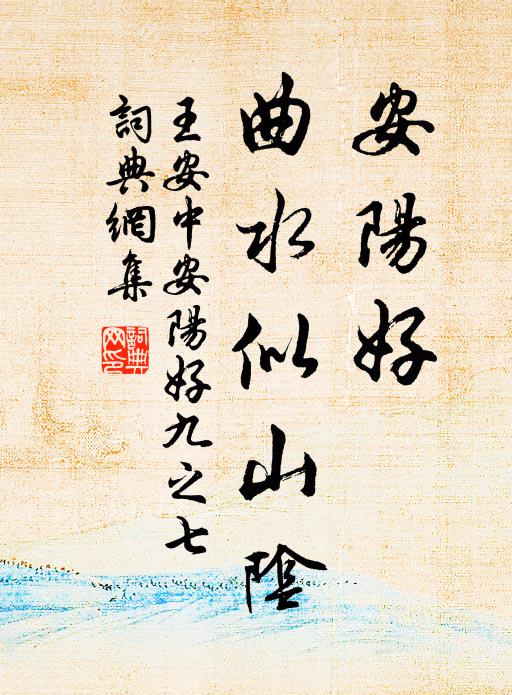 安陽好
曲水似山陰
王安中安陽好九之七
詞典網集
詞典網印